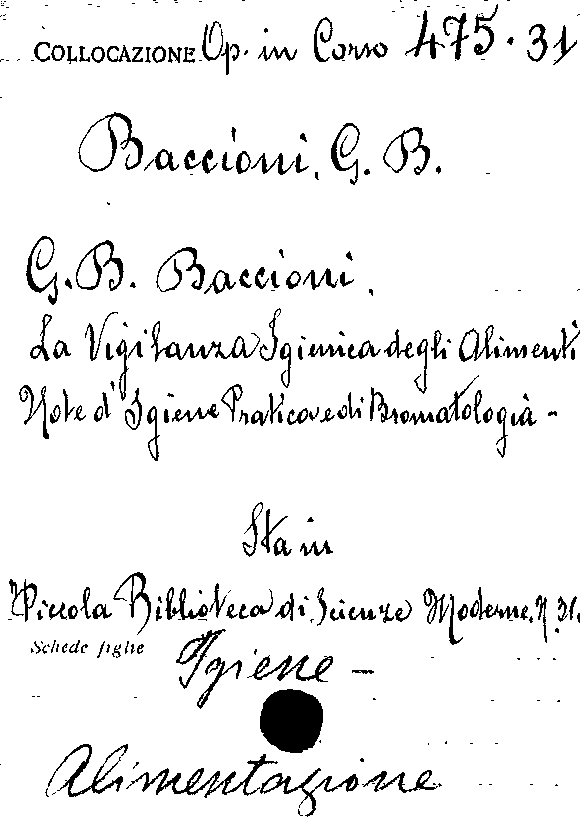 COLLOCAZIONE Op. in Corso 475.31
Baccioni, G. B.
G. B. Baccioni,
La Vigilanza Igienica degli Alimenti
Note d'Igiene Pratica e di Bromatologia -
Sta in
Piccola Biblioteca di Scienze Moderne, N. 31.
Schede figlie
Igiene -
Alimentazione